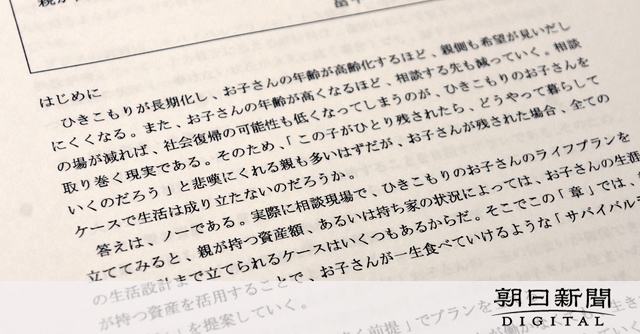 はじめに
ひきこもりが長期化し、お子さんの年齢が高齢化するほど、親側も希望が見いだし
にくくなる。また、お子さんの年齢が高くなるほど、相談する先も減っていく。相談
の場が減れば、社会復帰の可能性も低くなってしまうのが、ひきこもりのお子さんを
取り巻く現実である。そのため、「この子がひとり残されたら、どうやって暮らして
いくのだろう」と悲嘆にくれる親も多いはずだが、お子さんが残された場合、全ての
ケースで生活は成り立たないのだろうか。
答えは、ノーである。実際に相談現場で、ひきこもりのお子さんのライフプランを
立ててみると、親が持つ資産額、あるいは持ち家の状況によっては、お子さんの生涯
の生活設計まで立てられるケースはいくつもあるからだ。そこでこの「章」では、
が持つ資産を活用することで、お子さんが一生食べていけるような「サバイバル
」を提案していく。
前提」でプランを
朝日新聞
DIGITAL